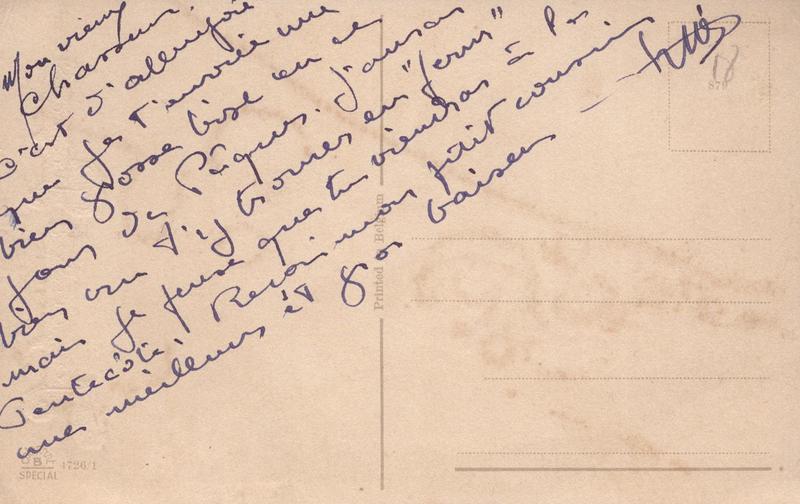 Mon vieux
Chasseur.
C'est d'allemagne
que je t'envoie une
bien grosse bise en ce
jour de Pâques. J'aurai
bien vu t'y trouver en "perm"
mais je pense que tu viendras à la
Pentecôte. Reçois mon petit cousin
mes meilleurs et gros baisers
18
879
Printed in Belgium
4726/1
SPECIAL